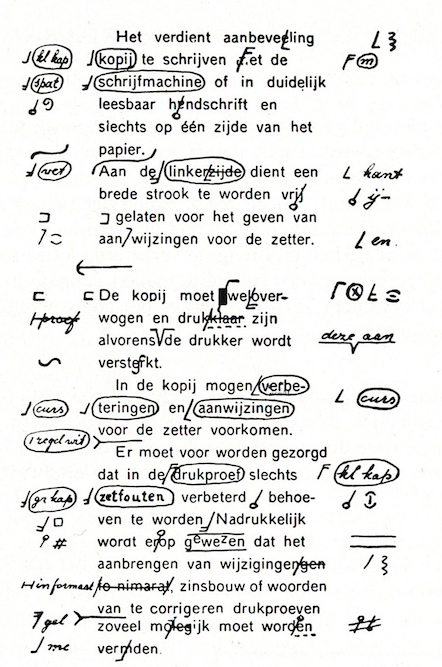 Het verdient aanbeveeling
kl kap kopij te schrijven f.et de F m
spat schrijfmachine of in duidelijk
leesbaar handschrift en
slechts op één zijde van het
papier.
vet Aan de linkerzijde dient een kant
brede strook te worden vrij ij
gelaten voor het geven van
aan/wijzingen voor de zetter. en.
De kopij moet wel over-
proef wogen en drukklaar zijn
alvorens de drukker wordt deze aan
versterkt.
In de kopij mogen verbe-
curs teringen en aanwijzingen curs
voor de zetter voorkomen.
1 regel wit Er moet voor worden gezorgd
dat in de drukproef slechts F kl kap
gr kap zetfouten verbeterd behoe-
ven te worden Nadrukkelijk
# wordt erop gewezen dat het
aanbrengen van wijzigingengen
informast to nimarat, zinsbouw of woorden
van te corrigeren drukproeven
gel zoveel molegijk moet worden
me vermden.